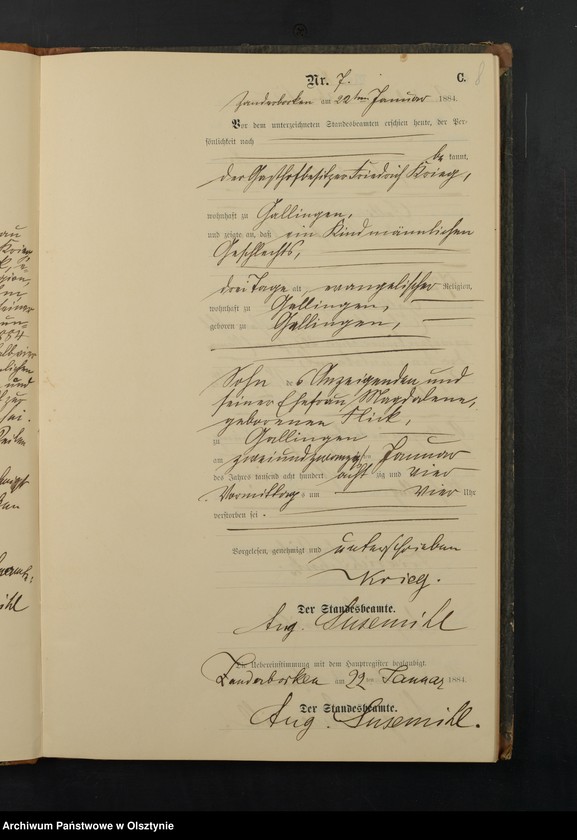 Nr. 7. C. 8
Zanderborken am 22ten Januar 1884.
Vor dem unterzeichneten Standesbeamten erschien heute, der Per-
sönlichkeit nach
be kannt,
der Gasthofbesitzer Friedrich Krieg,
wohnhaft zu Gallingen,
und zeigte an, daß ein Kind männlichen
Geschlechts,
drei Tage alt, evangelischer Religion,
wohnhaft zu Gallingen,
geboren zu Gallingen,
Sohn des Anzeigenden und
seiner Ehefrau Magdalene,
geborenen Flick,
zu Gallingen
am zweiundzwanzigsten Januar
des Jahres tausend acht hundert achtzig und vier
Vormittags um vier Uhr
verstorben sei.
Vorgelesen, genehmigt und unterschrieben
Krieg.
Der Standesbeamte.
Aug. Susemihl
Die Uebereinstimmung mit dem Hauptregister beglaubigt.
Zanderborken am 22ten Januar 1884
Der Standesbeamte.
Aug. Susemihl.
Archiwum Państwowe w Olsztynie